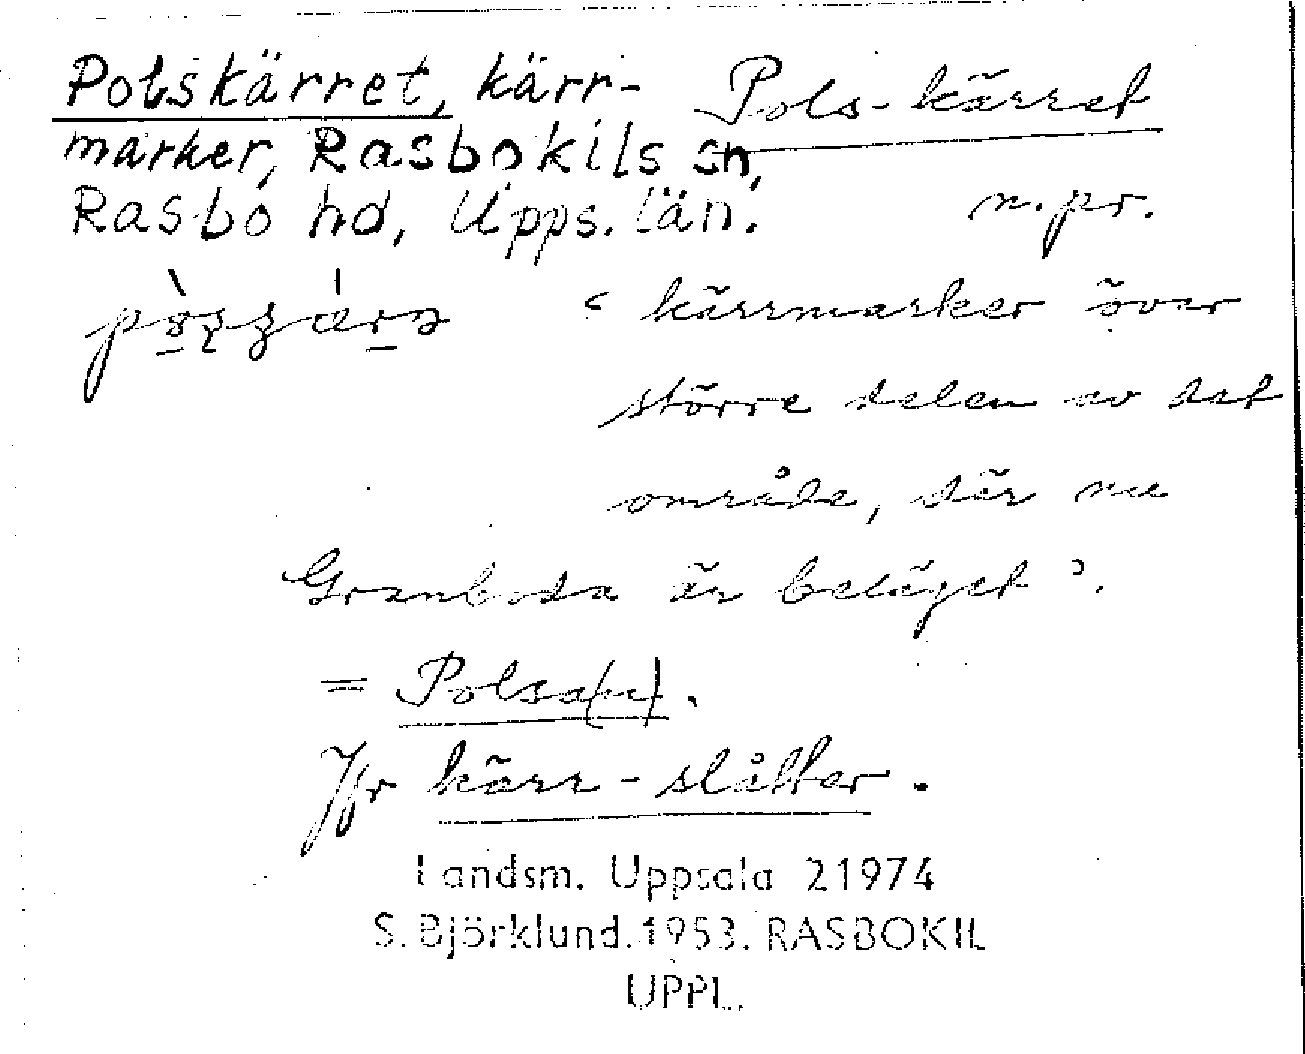 Polskärret, kärr-
marker, Rasbokils sn,
Rasbo hd, Upps. län.
Pols-kärret
n.pr.
‘kärrmarker över
större delen av det
område, där nu
Granboda är beläget’.
= Polsa(n).
Jfr kärr-slåtter.
Landsm. Uppsala 21974
S. Björklund. 1953. RASBOKIL
UPPL.